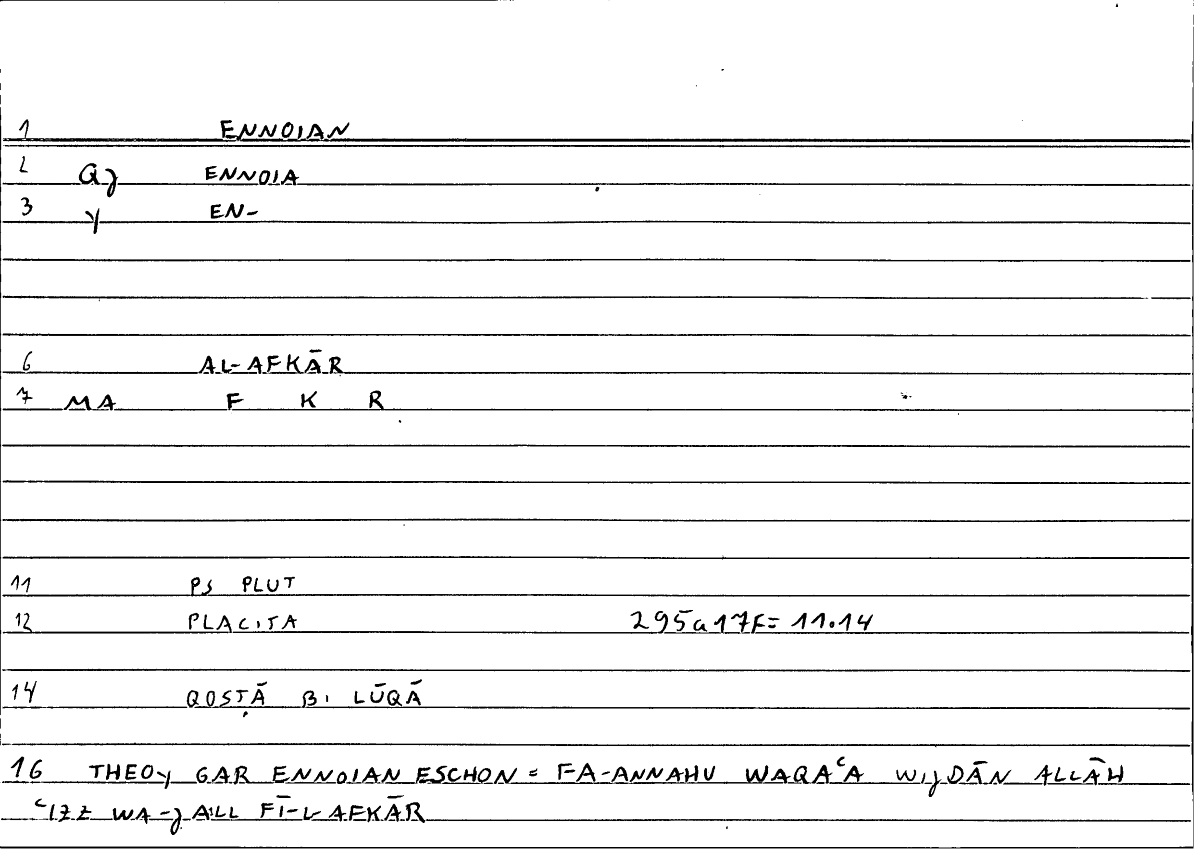 1 ENNOIAN
2 Qȷ ENNOIA
3 γ EN-
6 AL-AFKĀR
7 MA F K R
11 PS PLUT
12 PLACITA 295a17F= 11.14
14 QOSṬĀ B. LŪQĀ
16 THEOγ GAR ENNOIAN ESCHON = FA-ANNAHU WAQAᶜA WIJDĀN ALLĀH
ᶜIZZ WA-JALL FĪ-L-AFKĀR